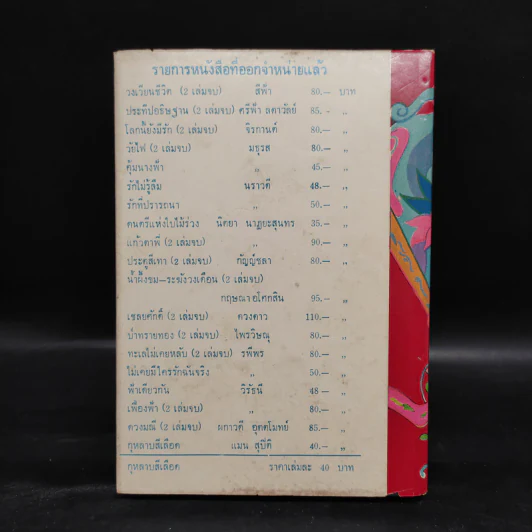 รายการหนังสือที่ออกจำหน่ายแล้ว
วงเวียนชีวิต (2 เล่มจบ) สีฟ้า 80.— บาท
ประทีปอธิษฐาน (2 เล่มจบ) ศรีฟ้า ลดาวัลย์ 85.- „
โลกนี้ยังมีรัก (2 เล่มจบ) จิรกานต์ 80.— „
วัยไฟ (2 เล่มจบ) มธุรส 80.— „
คุ้มนางฟ้า „ 45.— „
รักไม่รู้ลืม นราวดี 48.— „
รักที่ปรารถนา „ 50.— „
ดนตรีแห่งใบไม้ร่วง นิตยา นาฏยะสุนทร 35.— „
แก้วตาพี่ (2 เล่มจบ) „ 90.— „
ประตูสีเทา (2 เล่มจบ) กัญญ์ชลา 80.— „
น้ำผึ้งขม—ระฆังวงเดือน (2 เล่มจบ)
กฤษณา อโศกสิน 95.— „
เชลยศักดิ์ (2 เล่มจบ) ดวงดาว 110.— „
ป่าทรายทอง (2 เล่มจบ) ไพรวิษณุ 80.— „
ทะเลไม่เคยหลับ (2 เล่มจบ) รพีพร 80.— „
ไม่เคยมีใครรักฉันจริง „ 50.— „
ฟ้าเดียวกัน วิรัธนี 48 — „
เฟื่องฟ้า (2 เล่มจบ) „ 80.— „
ดวงมณี (2 เล่มจบ) ผกาวดี อุตตโมทย์ 85.— „
กุหลาบสีเลือด แมน สุปิติ 40.— „
กุหลาบสีเลือด ราคาเล่มละ 40 บาท